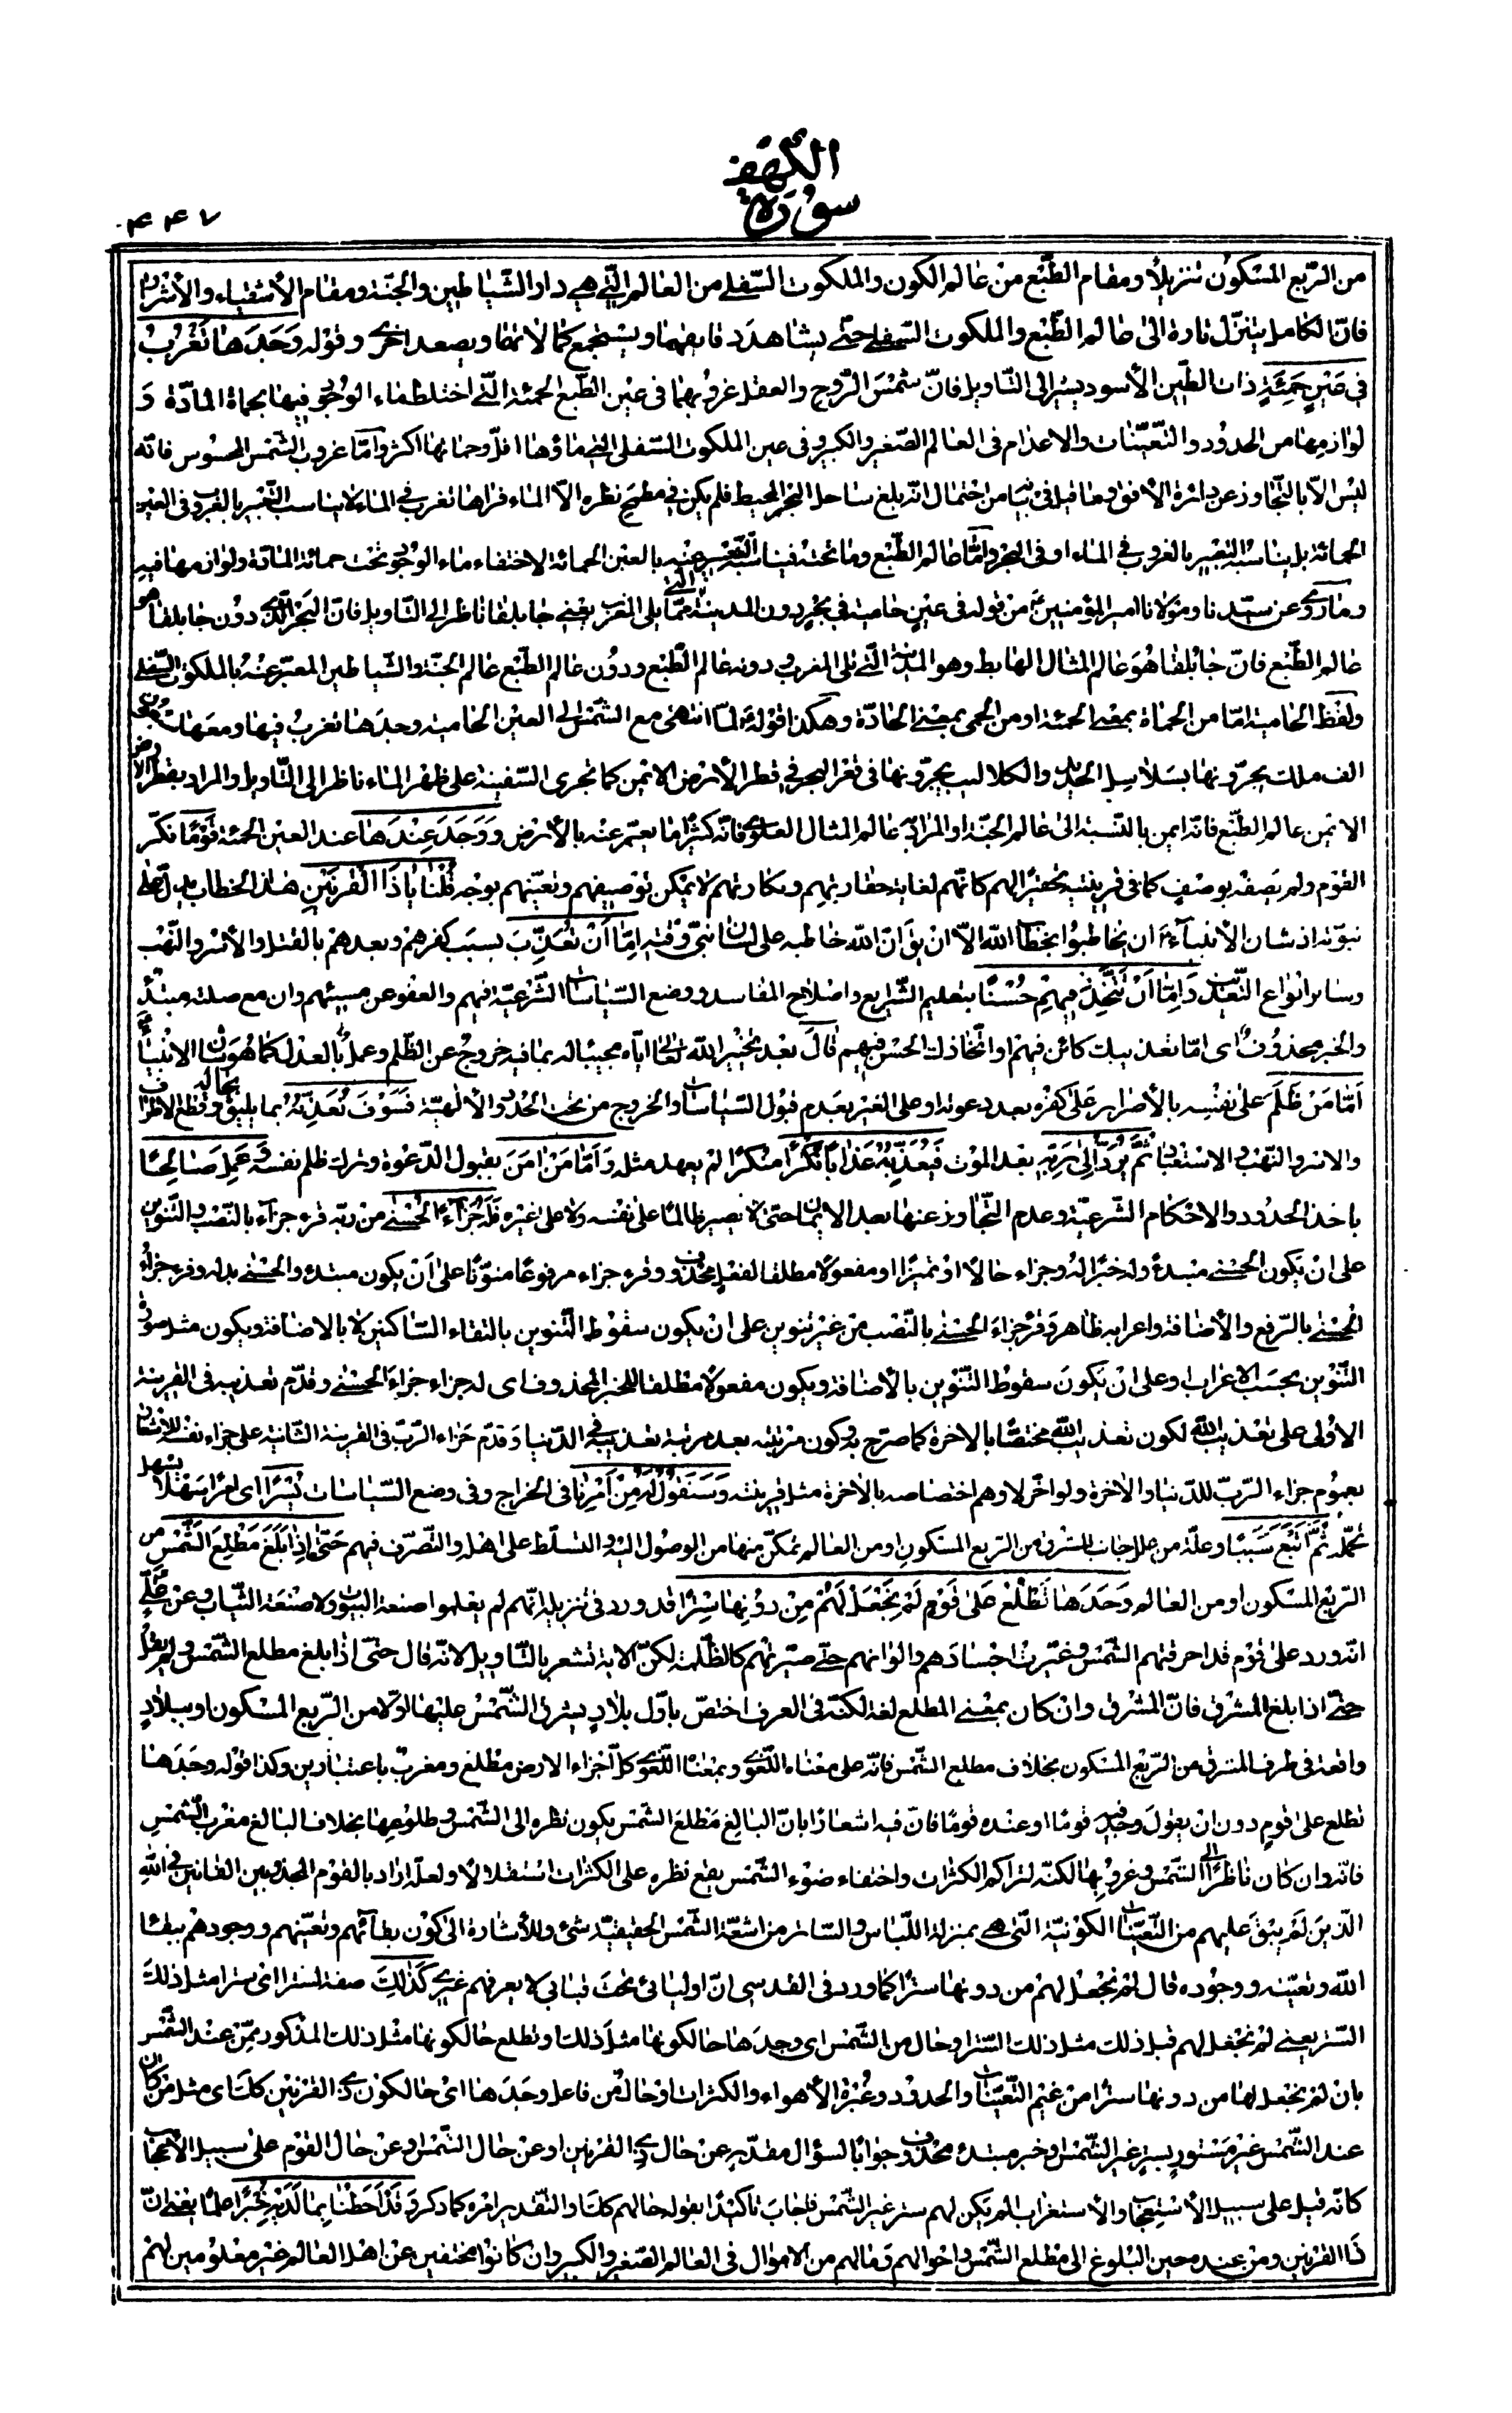 الكهف
سورة
٤٤٧
من الرّبع المسكون تنزيلًا ومقام الطّبع من عالم الكون والملكوت السّفلى من العالم الّتى هى دار الشّياطين والجنّة ومقام الأشقياء والأشرار
فانّ الكامل يتنزّل تارة الى عالم الطّبع والملكوت السّفلى حتّى يشاهد دقايقهما ويستجمع كمالاتهما ويصعد اخرى وقوله وَجَدَهَا تَغْرُبُ
فِي عَيْنٍ حَمِئَةٍ ذات الطّين الأسود يشير الى التّاويل فانّ شمس الرّوح والعقل غروبهما فى عين الطّبع الحمئة الّتى اختلط ماء الوجود فيها بحماة المادّة و
لوازمها من الحدود والتّعيّنات والاعدام فى العالم الصّغير والكبير وفى عين الملكوت السّفلى الّتى ماؤها اقلّ وحماتها اكثر وامّا غروب الشّمس المحسوس فانّه
ليس الّا بالتّجاوز عن دائرة الأفق وما قيل فى بيانه من احتمال انّه بلغ ساحل البحر المحيط فلم يكن فى مطمح نظره الّا الماء فراها تغرب فى الماء لا يناسب التّعبير بالغروب فى العين
الحمائة بل يناسبه التّعبير بالغروب فى الماء او فى البحر وامّا عالم الطّبع وما تحته فيناسبه التّعبير عنه بالعين الحمائة لاختفاء ماء الوجود تحت حمائة المادّة ولوازمها فيه
وما روى عن سيّدنا ومولانا امير المؤمنين من قوله فى عين حامية فى بحر دون المدينة الّتى ممّا يلى المغرب يعنى جابلقا ناظر الى التّاويل فانّ البحر الّذى دون جابلقا هو
عالم الطّبع فانّ جابلقا هو عالم المثال الهابط وهو المدينة الّتى تلى المغرب ودونه عالم الطّبع ودون عالم الطّبع عالم الجنّة والشّياطين المعبّر عنه بالملكوت السّفلى
ولفظ الحامية امّا من الحماة بمعنى الحمئة او من الحمى بمعنى الحادّة وهكذا قوله لمّا انتهى مع الشّمس الى العين الحامية وجدها تغرب فيها ومعها سبعون
الف ملك يجرّونها بسلاسل الحديد والكلاليب يجرّونها فى قعر البحر فى قطر الأرض الايمن كما تجرى السّفينة على ظهر الماء ناظر الى التّاويل والمراد بقطر الارض
الايمن عالم الطّبع فانّه ايمن بالنّسبة الى عالم الجنّة او المراد به عالم المثال العلوى فانّه كثيرًا ما يعبّر عنه بالأرض وَوَجَدَ عِنْدَهَا عند العين الحمئة قَوْمًا نكّر
القوم ولم يصفه بوصف كما فى قرينتيه تحقيرًا لهم كانّهم لغاية حقارتهم ونكارتهم لا يمكن توصيفهم وتعيّنهم بوجه قُلْنَا يَاذَا الْقَرْنَيْنِ هذا الخطاب يدلّ على
نبوّته اذ شان الأنبياء ان يخاطبوا بخطاب اللّه الّا ان يق انّ اللّه خاطبه على لسان نبىّ وقته إِمَّا أَنْ تُعَذِّبَ بسبب كفرهم وبعدهم بالقتل والأسر والنّهب
وسائر انواع التّعذيب وَإِمَّا أَنْ تَتَّخِذَ فِيهِمْ حُسْنًا بتعليم الشّرايع واصلاح المفاسد ووضع السّياسات الشّرعيّة فيهم والعفو عن مسيئهم وان مع صلته مبتدء
والخبر محذوف اى امّا تعذيبك كائن فيهم او اتّخاذك الحسن فيهم قَالَ بعد تخيير اللّه تعالى ايّاه مجيبًا له بما فيه خروج عن الظّلم وعمل بالعدل كما هو شان الانبياء
أَمَّا مَنْ ظَلَمَ على نفسه بالأصرار على كفره بعد دعوته او على الغير بعدم قبول السّياسات والخروج من تحت الحدود الألهيّة فَسَوْفَ نُعَذِّبُهُ بما يليق بحاله وقطع الاطراف
والاسر والنّهب والاستعباد ثُمَّ يُرَدُّ إِلَى رَبِّهِ بعد الموت فَيُعَذِّبُهُ عَذَابًا نُكْرًا منكرًا لم يعهد مثله وَأَمَّا مَنْ امَنَ بقبول الدّعوة وترك ظلم نفسه وَعَمِلَ صَالِحًا
باخذ الحدود والاحكام الشّرعيّة وعدم التّجاوز عنها بعد الايمان حتّى لا يصير ظالمًا على نفسه ولا على غيره فَلَهُ جَزَاءً الْحُسْنَى من ربّه قرء جزآء بالنّصب والتّنوين
على ان يكون الحسنى مبتدءً وله خبرًا له وجزاء حالًا او تميزًا او مفعولًا مطلقا لفعل محذوف وقرء جزاء مرفوعًا منوّنًا على ان يكون مبتدء والحسنى بدله وقرء جزاء
الحسنى بالرّفع والأضافة واعرابه ظاهر وقرء جزاء الحسنى بالنّصب من غير تنوين على ان يكون سقوط التّنوين بالتقاء السّاكنين لا بالاضافة ويكون مثل صورة
التّنوين بحسب الاعراب وعلى ان يكون سقوط التّنوين بالأضافة ويكون مفعولًا مطلقا للخبر المحذوف اى له جزاء جزاء الحسنى وقدّم تعذيبه فى القرينة
الأولى على تعذيب اللّه لكون تعذيب اللّه مختصًّا بالاخرة كما صرّح به وكون مرتبته بعد مرتبة تعذيبه فى الدّنيا وقدّم جزاء الرّبّ فى القرينة الثّانية على جزاء نفسه للاشعار
بعموم جزاء الرّبّ للدّنيا والاخرة ولو اخّر لاوهم اختصاصه بالأخرة مثل قرينته وَسَنَقُولُ لَهُ مِنْ أَمْرِنَا فى الخراج وفى وضع السّياسات يُسْرًا اى امرًا سهلًا يسهل
تحمّله ثُمَّ أَتْبَعَ سَبَبًا وعلّة من علل جانب المشرق من الرّبع المسكون او من العالم تمكّن منها من الوصول اليه والتسلّط على اهله والتّصرّف فيهم حَتَّى إِذَا بَلَغَ مَطْلِعَ الشَّمْسِ من
الرّبع المسكون او من العالم وَجَدَهَا تَطْلُعُ عَلَى قَوْمٍ لَمْ نَجْعَلْ لَهُمْ مِنْ دُونِهَا سِتْرًا قد ورد فى تنزيله انّهم لم يعلموا صنعة البيوت ولا صنعة الثّياب وعن علىّ
انّه ورد على قوم قد احرقتهم الشّمس وغيّرت اجسادهم والوانهم حتّى صيّرتهم كالظّلمة لكنّ الاية تشعر بالتّاويل لانّه قال حتّى اذا بلغ مطلع الشّمس ولم يقل
حتّى اذا بلغ المشرق فانّ المشرق وان كان بمعنى المطلع لغة لكنّه فى العرف اختصّ باوّل بلاد يشرق الشّمس عليها اوّلا من الرّبع المسكون او ببلاد
واقعة فى طرف المشرق من الرّبع المسكون بخلاف مطلع الشّمس فانّه على معناه اللّغوى وبمعناه اللّغوى كلّ اجزاء الارض مطلع ومغرب باعتبارين وكذا قوله وجدها
تطلع على قوم دون ان يقول وجد فيه قومًا او عنده قومًا فانّ فيه اشعارًا بانّ البالغ مطلع الشّمس يكون نظره الى الشّمس وطلوعها بخلاف البالغ مغرب الشّمس
فانّه وان كان ناظرًا الى الشّمس وغروبها لكنّه لتراكم الكثرات واختفاء ضوء الشّمس يقع نظره على الكثرات استقلالًا ولعلّه اراد بالقوم المجذوبين الفانين فى اللّه
الّذين لم يبق عليهم من التّعيّنات الكونيّة الّتى هى بمنزلة اللّباس والسّاتر من اشعّة الشّمس الحقيقيّة شىء وللأشارة الى كون بقائهم وتعيّنهم ووجودهم ببقاء
اللّه وتعيّنه ووجوده قال لم نجعل لهم من دونها سترًا كما ورد فى القدسى انّ اوليائى تحت قبابى لا يعرفهم غيرى كَذَلِكَ صفة لسترا اى سترا مثل ذلك
السّتر يعنى لم نجعل لهم قبل ذلك مثل ذلك السّتر او حال من الشّمس اى وجدها حالكونها مثل ذلك او تطلع حالكونها مثل ذلك المذكور ممّن عند الشّمس
بان لم نجعل لها من دونها سترًا من غيم التّعيّنات والحدود وغبرة الأهواء والكثرات او حال من فاعل وجدها اى حالكون ذى القرنين كذلك اى مثل من كان
عند الشّمس غير مستور بستر غير الشّمس او خبر مبتدء محذوف وجوابًا لسؤال مقدّر عن حال ذى القرنين او عن حال الشّمس او عن حال القوم على سبيل الأعجاب
كانّه قيل على سبيل الأستعجاب والأستغراب الم يكن لهم ستر غير الشّمس فاجاب تاكيدًا بقوله حالهم كذلك والتّقدير امره كما ذكر وَقَدْ أَحَطْنَا بِمَا لَدَيْهِ خُبْرًا علمًا يعنى انّ
ذا القرنين ومن عنده حين البلوغ الى مطلع الشّمس واحوالهم وما لهم من الاموال فى العالم الصّغير والكبير وان كانوا مختفين عن اهل العالم غير معلومين لهم